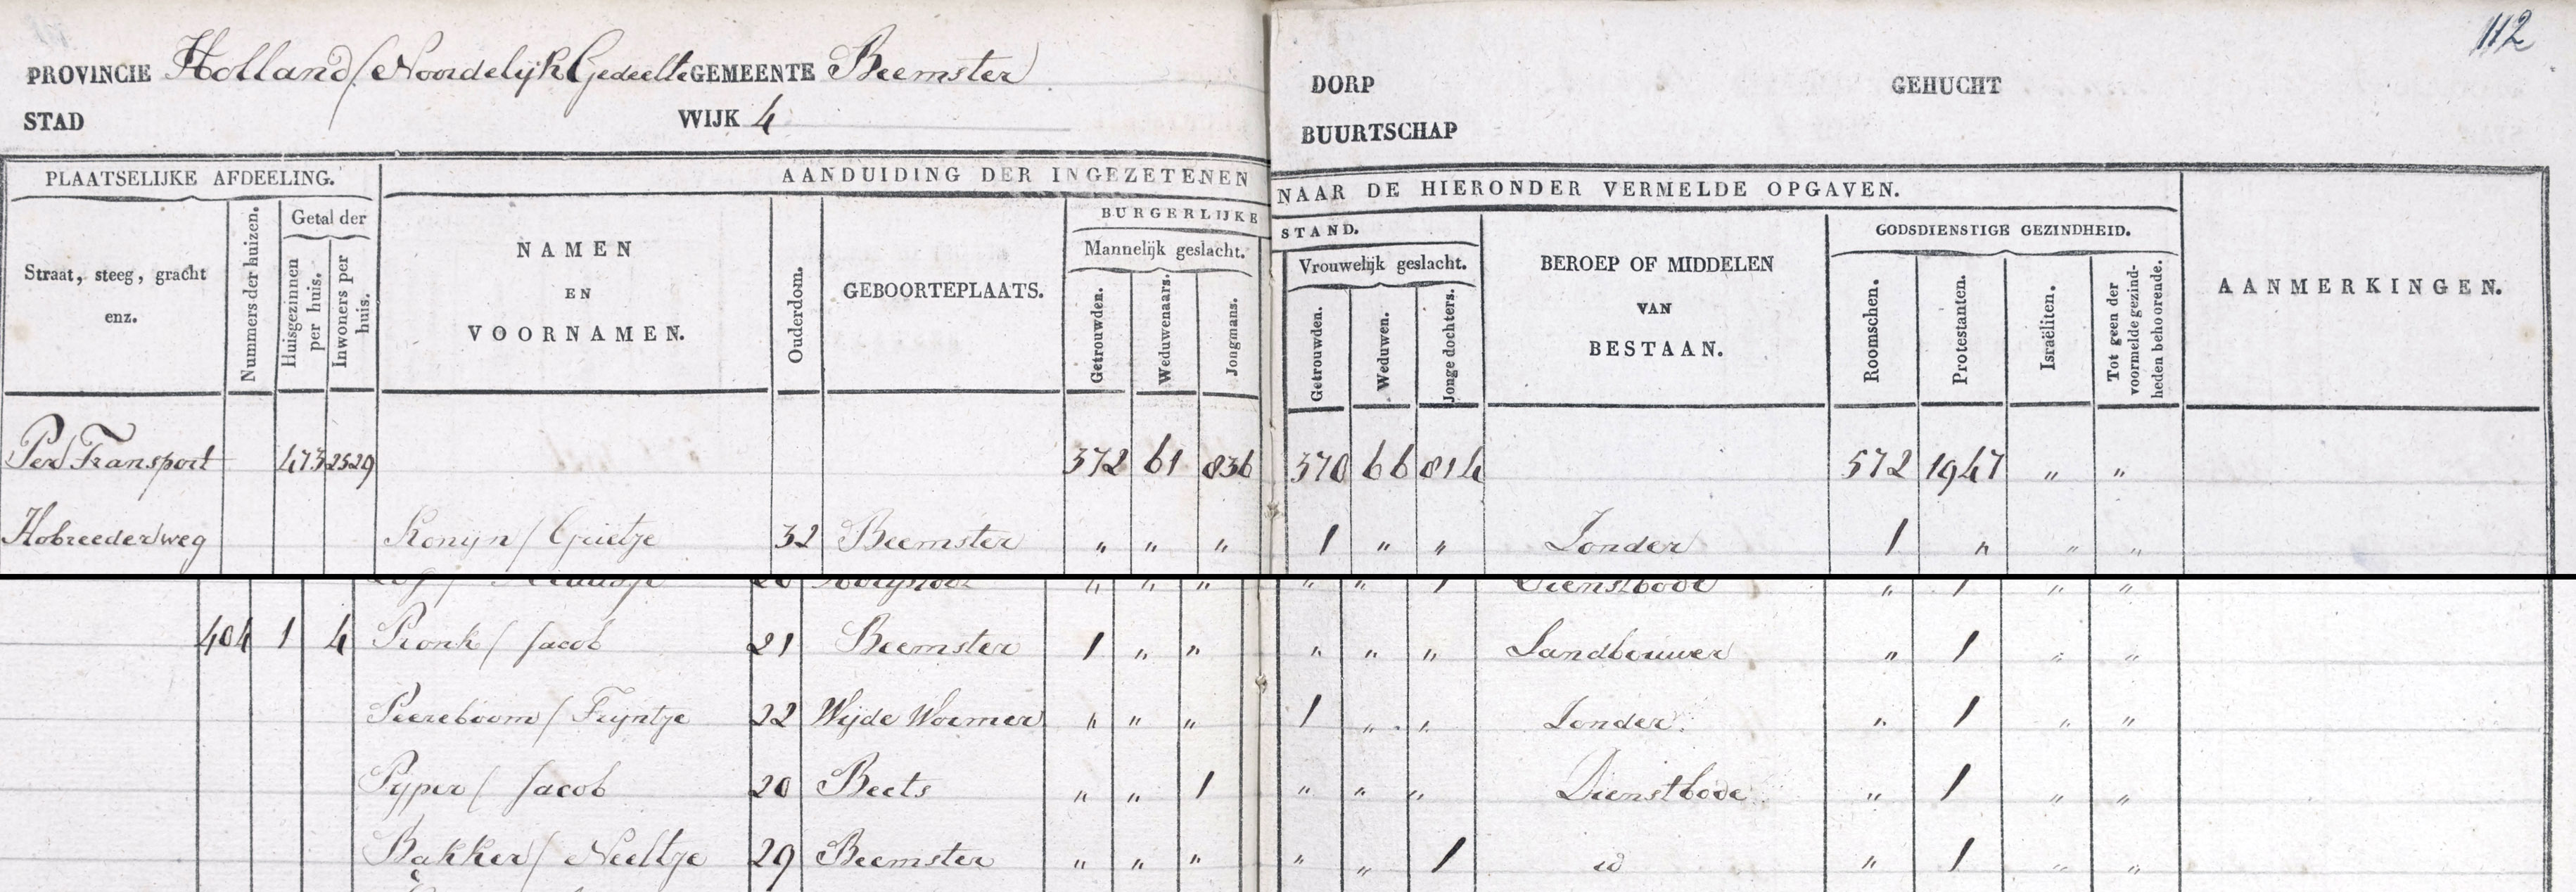 112
PROVINCIE Holland (Noordelijk Gedeelte GEMEENTE Beemster
STAD WIJK 4
DORP GEHUCHT
BUURTSCHAP
PLAATSELIJKE AFDEELING. AANDUIDING DER INGEZETENEN NAAR DE HIERONDER VERMELDE OPGAVEN.
Straat, steeg, gracht enz.
Nummers der huizen.
Getal der
Huisgezinnen per huis.
Inwoners per huis.
NAMEN
EN
VOORNAMEN.
Ouderdom.
GEBOORTEPLAATS.
BURGERLIJKE STAND.
Mannelijk geslacht.
Getrouwden.
Weduwenaars.
Jongmans.
Vrouwelijk geslacht.
Getrouwden.
Weduwen.
Jonge dochters.
BEROEP OF MIDDELEN
VAN
BESTAAN.
GODSDIENSTIGE GEZINDHEID.
Roomschen.
Protestanten.
Israëliten.
Tot geen der voormelde gezindheden behoorende.
AANMERKINGEN.
Per Transport 473 2529 372 61 836 370 66 814 572 1947 " "
Hobreeder weg Konijn / Grietje 32 Beemster " " " 1 " " Zonder 1 " " "
" " " " " 1 Dienstbode " 1 " "
404 1 4 Pronk / Jacob 21 Beemster 1 " " " " " Landbouwer " 1 " "
Peereboom / Trijntje 22 Wijde Wormer " " " 1 " " Zonder " 1 " "
Pijper / Jacob 20 Beets " " 1 " " " Dienstbode " 1 " "
Bakker / Neeltje 29 Beemster " " " " " 1 id " 1 " "